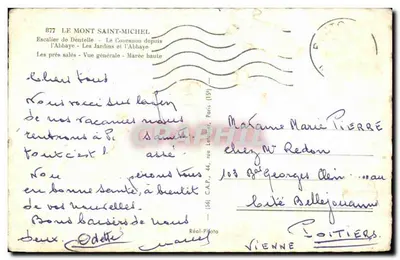 877 LE MONT SAINT-MICHEL
Escalier de Dentelle - Le Couesnon depuis
l'Abbaye - Les Jardins et l'Abbaye
Les prés salés - Vue générale - Marée haute
Chers tous
Nous voici sur la fin
de nos vacances nous
rentrons à P
c'est
Nou tous
en bonne santé, à bientôt
de vos nouvelles.
Bons baisers de nous
deux. Odette
Marcel
Réal-Photo
Madame Marie PIERRE
chez Mr Redon
103 Bd Georges Clem eau
Cité Bellejouanne
POITIERS
VIENNE